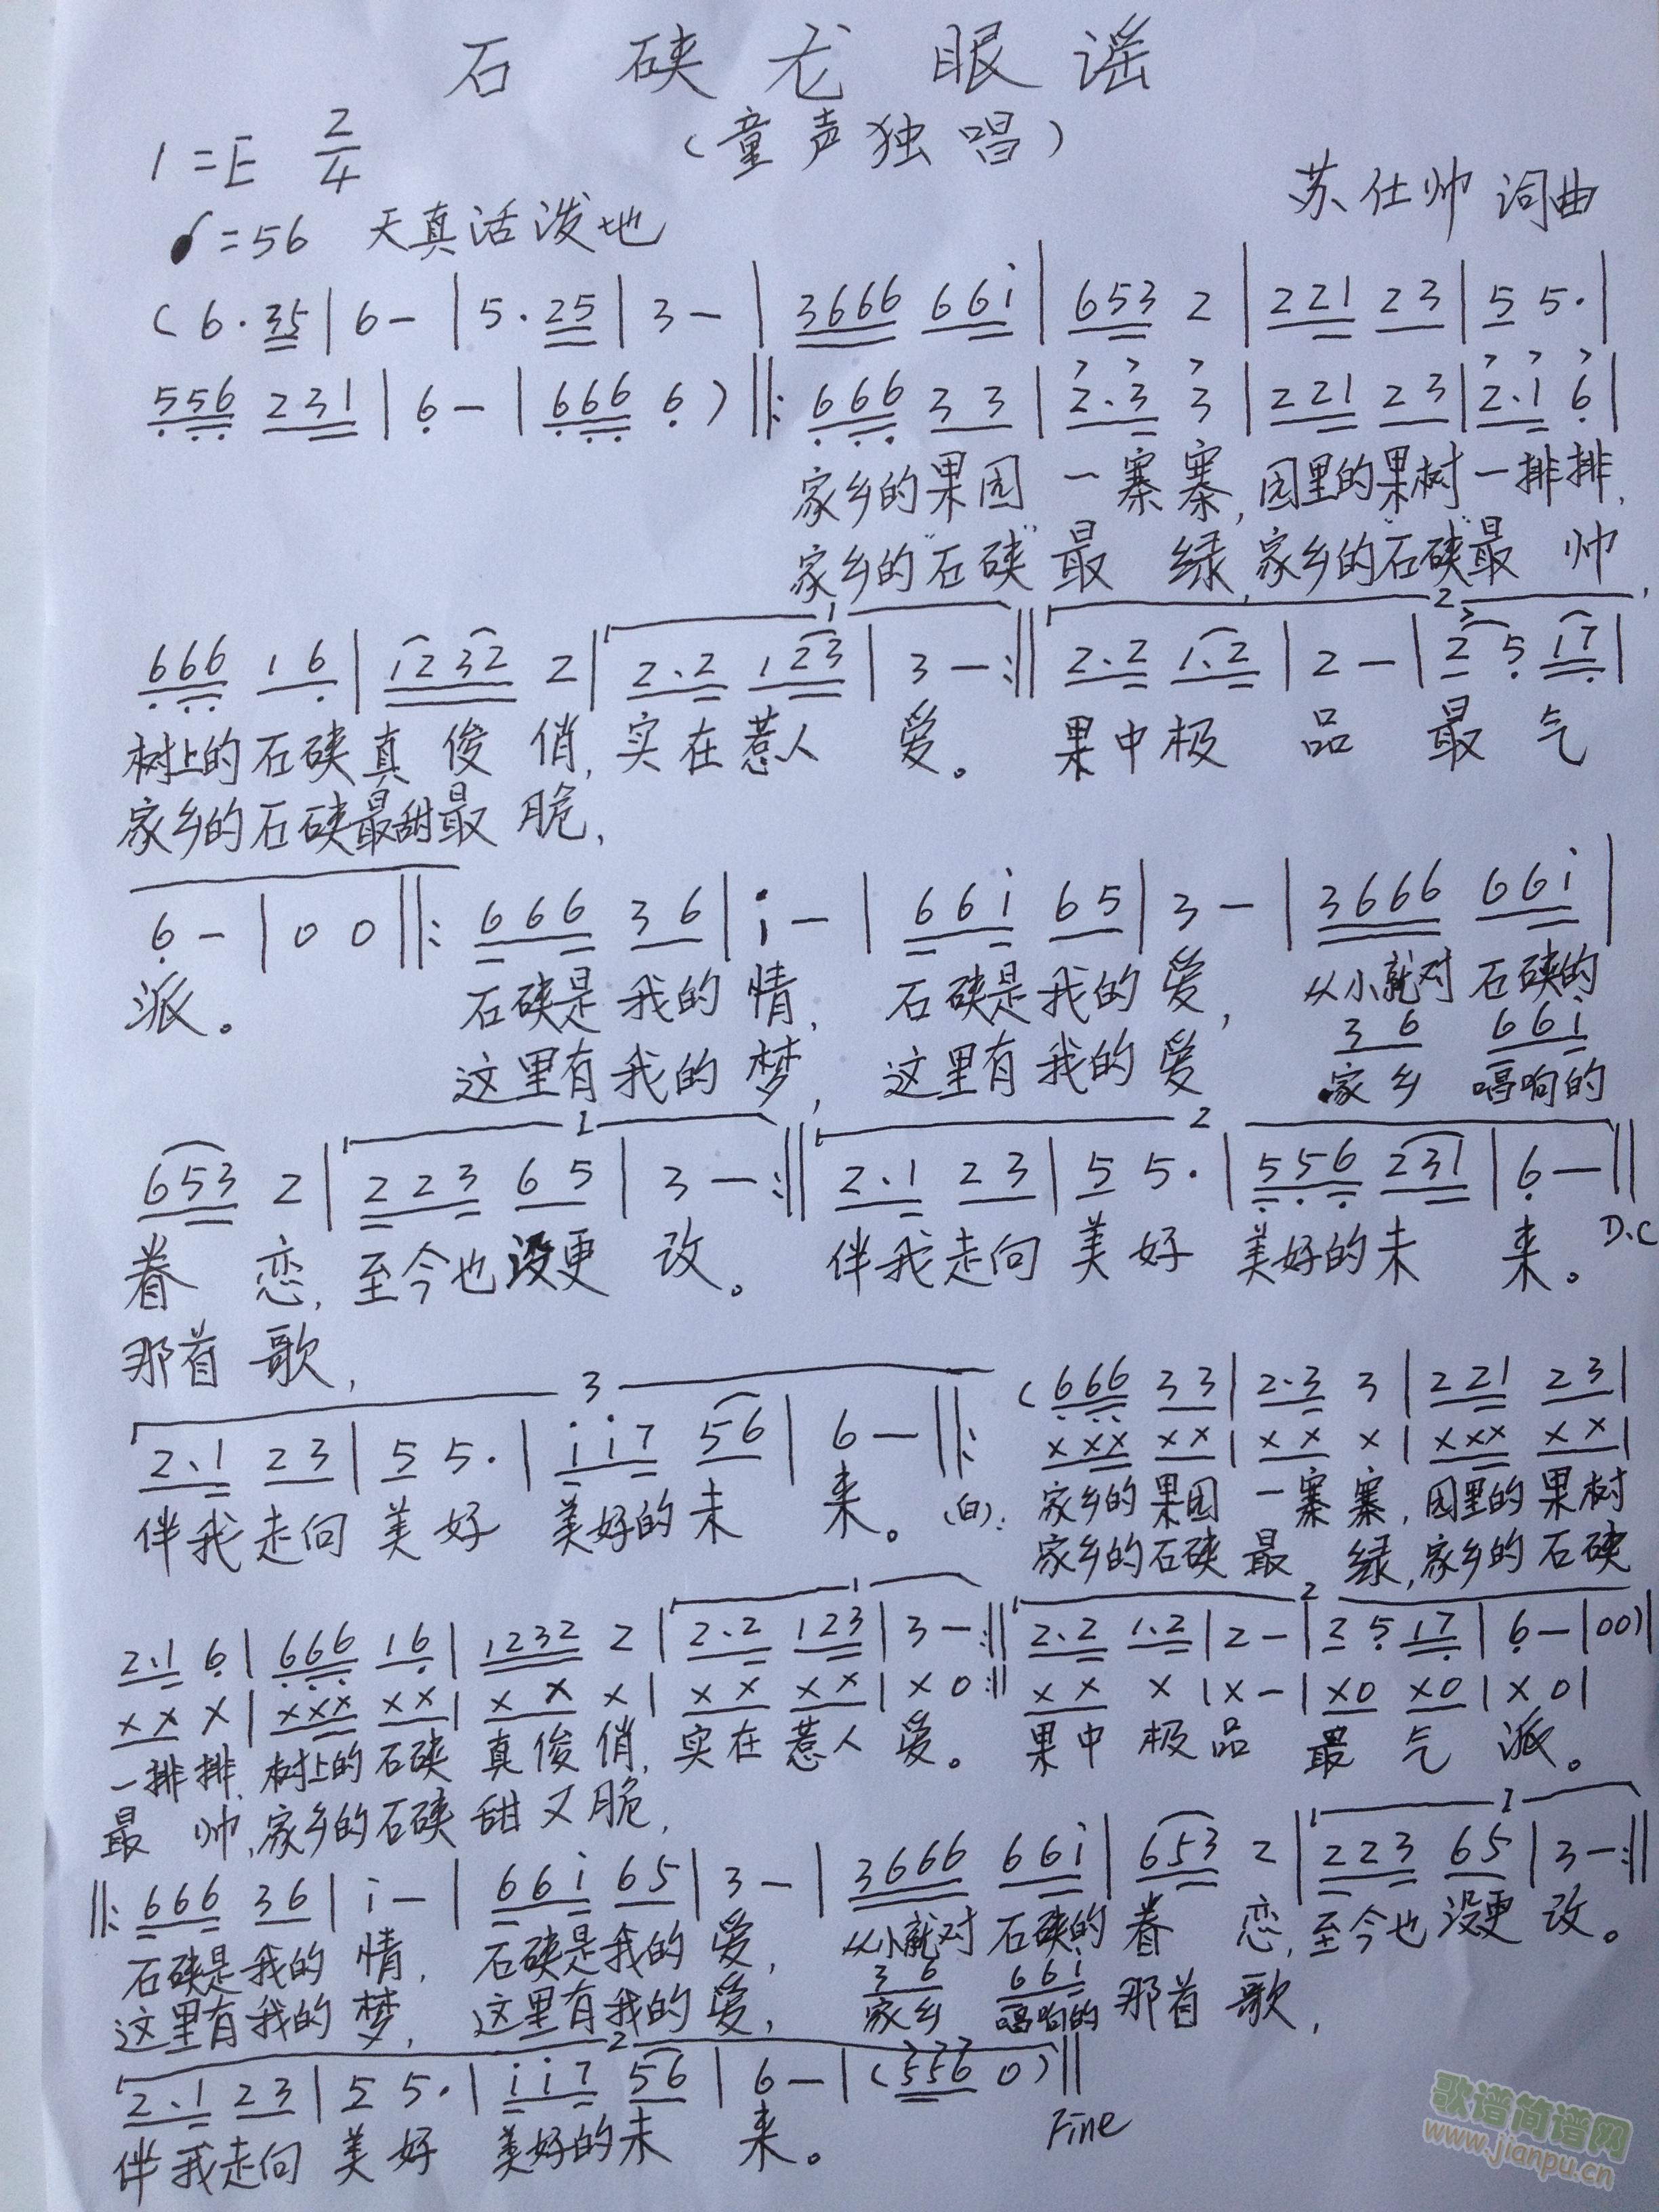 石硖龙眼谣
1=E 2/4
(童声独唱)
苏仕帅 词曲
♩=56 天真活泼地
(6·35|6-|5·25|3-|3666 66i|653 2|221 23|5 5·|
556 231|6-|666 6)‖:666 33|2·3 3|221 23|2·1 6|
家乡的果园一寨寨,园里的果树一排排,
家乡的"石硖"最绿,家乡的"石硖"最帅,
666 16|1232 2|2·2 123|3-:‖2·2 1·2|2-|2 5 17|
1 2
树上的石硖真俊俏,实在惹人爱。果中极品最气
家乡的石硖最甜最脆,
6-|00‖:666 36|i-|66i 65|3-|3666 66i|
派。石硖是我的情,石硖是我的爱,从小就对石硖的
36 66i
这里有我的梦,这里有我的爱家乡唱响的
1 2
653 2|223 65|3-:‖2·1 23|5 5·|556 231|6-‖
D.C
眷恋,至今也没更改。伴我走向美好美好的未来。
那首歌,
3
(666 33|2·3 3|221 23|
2·1 23|5 5·|ii7 56|6-‖:
xxx xx|xx x|xxx xx|
伴我走向美好美好的未来。(白):家乡的果园一寨寨,园里的果树
家乡的石硖最绿,家乡的石硖
1 2
2·1 6|666 16|1232 2|2·2 123|3-:‖2·2 1·2|2-|2 5 17|6-|00)|
xx x|xxx xx|xx x|xx xx|x0:‖xx x|x-|x0 x0|x0|
一排排,树上的石硖真俊俏,实在惹人爱。果中极品最气派。
最帅,家乡的石硖甜又脆,
1
‖:666 36|i-|66i 65|3-|3666 66i|653 2|223 65|3-:‖
石硖是我的情,石硖是我的爱,从小就对石硖的眷恋,至今也没更改。
36 66i
这里有我的梦,这里有我的爱,家乡唱响的那首歌,
2
2·1 23|5 5·|ii7 56|6-|(556 0)‖
Fine
伴我走向美好美好的未来。
歌谱简谱网
www.jianpu.cn